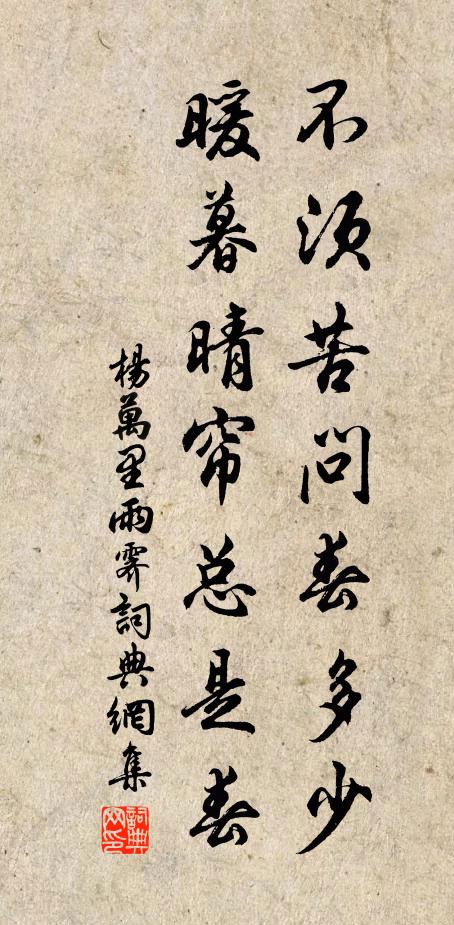 不须苦问春多少
暖暮晴帘总是春
楊萬里雨霽詞典網集
詞典网印